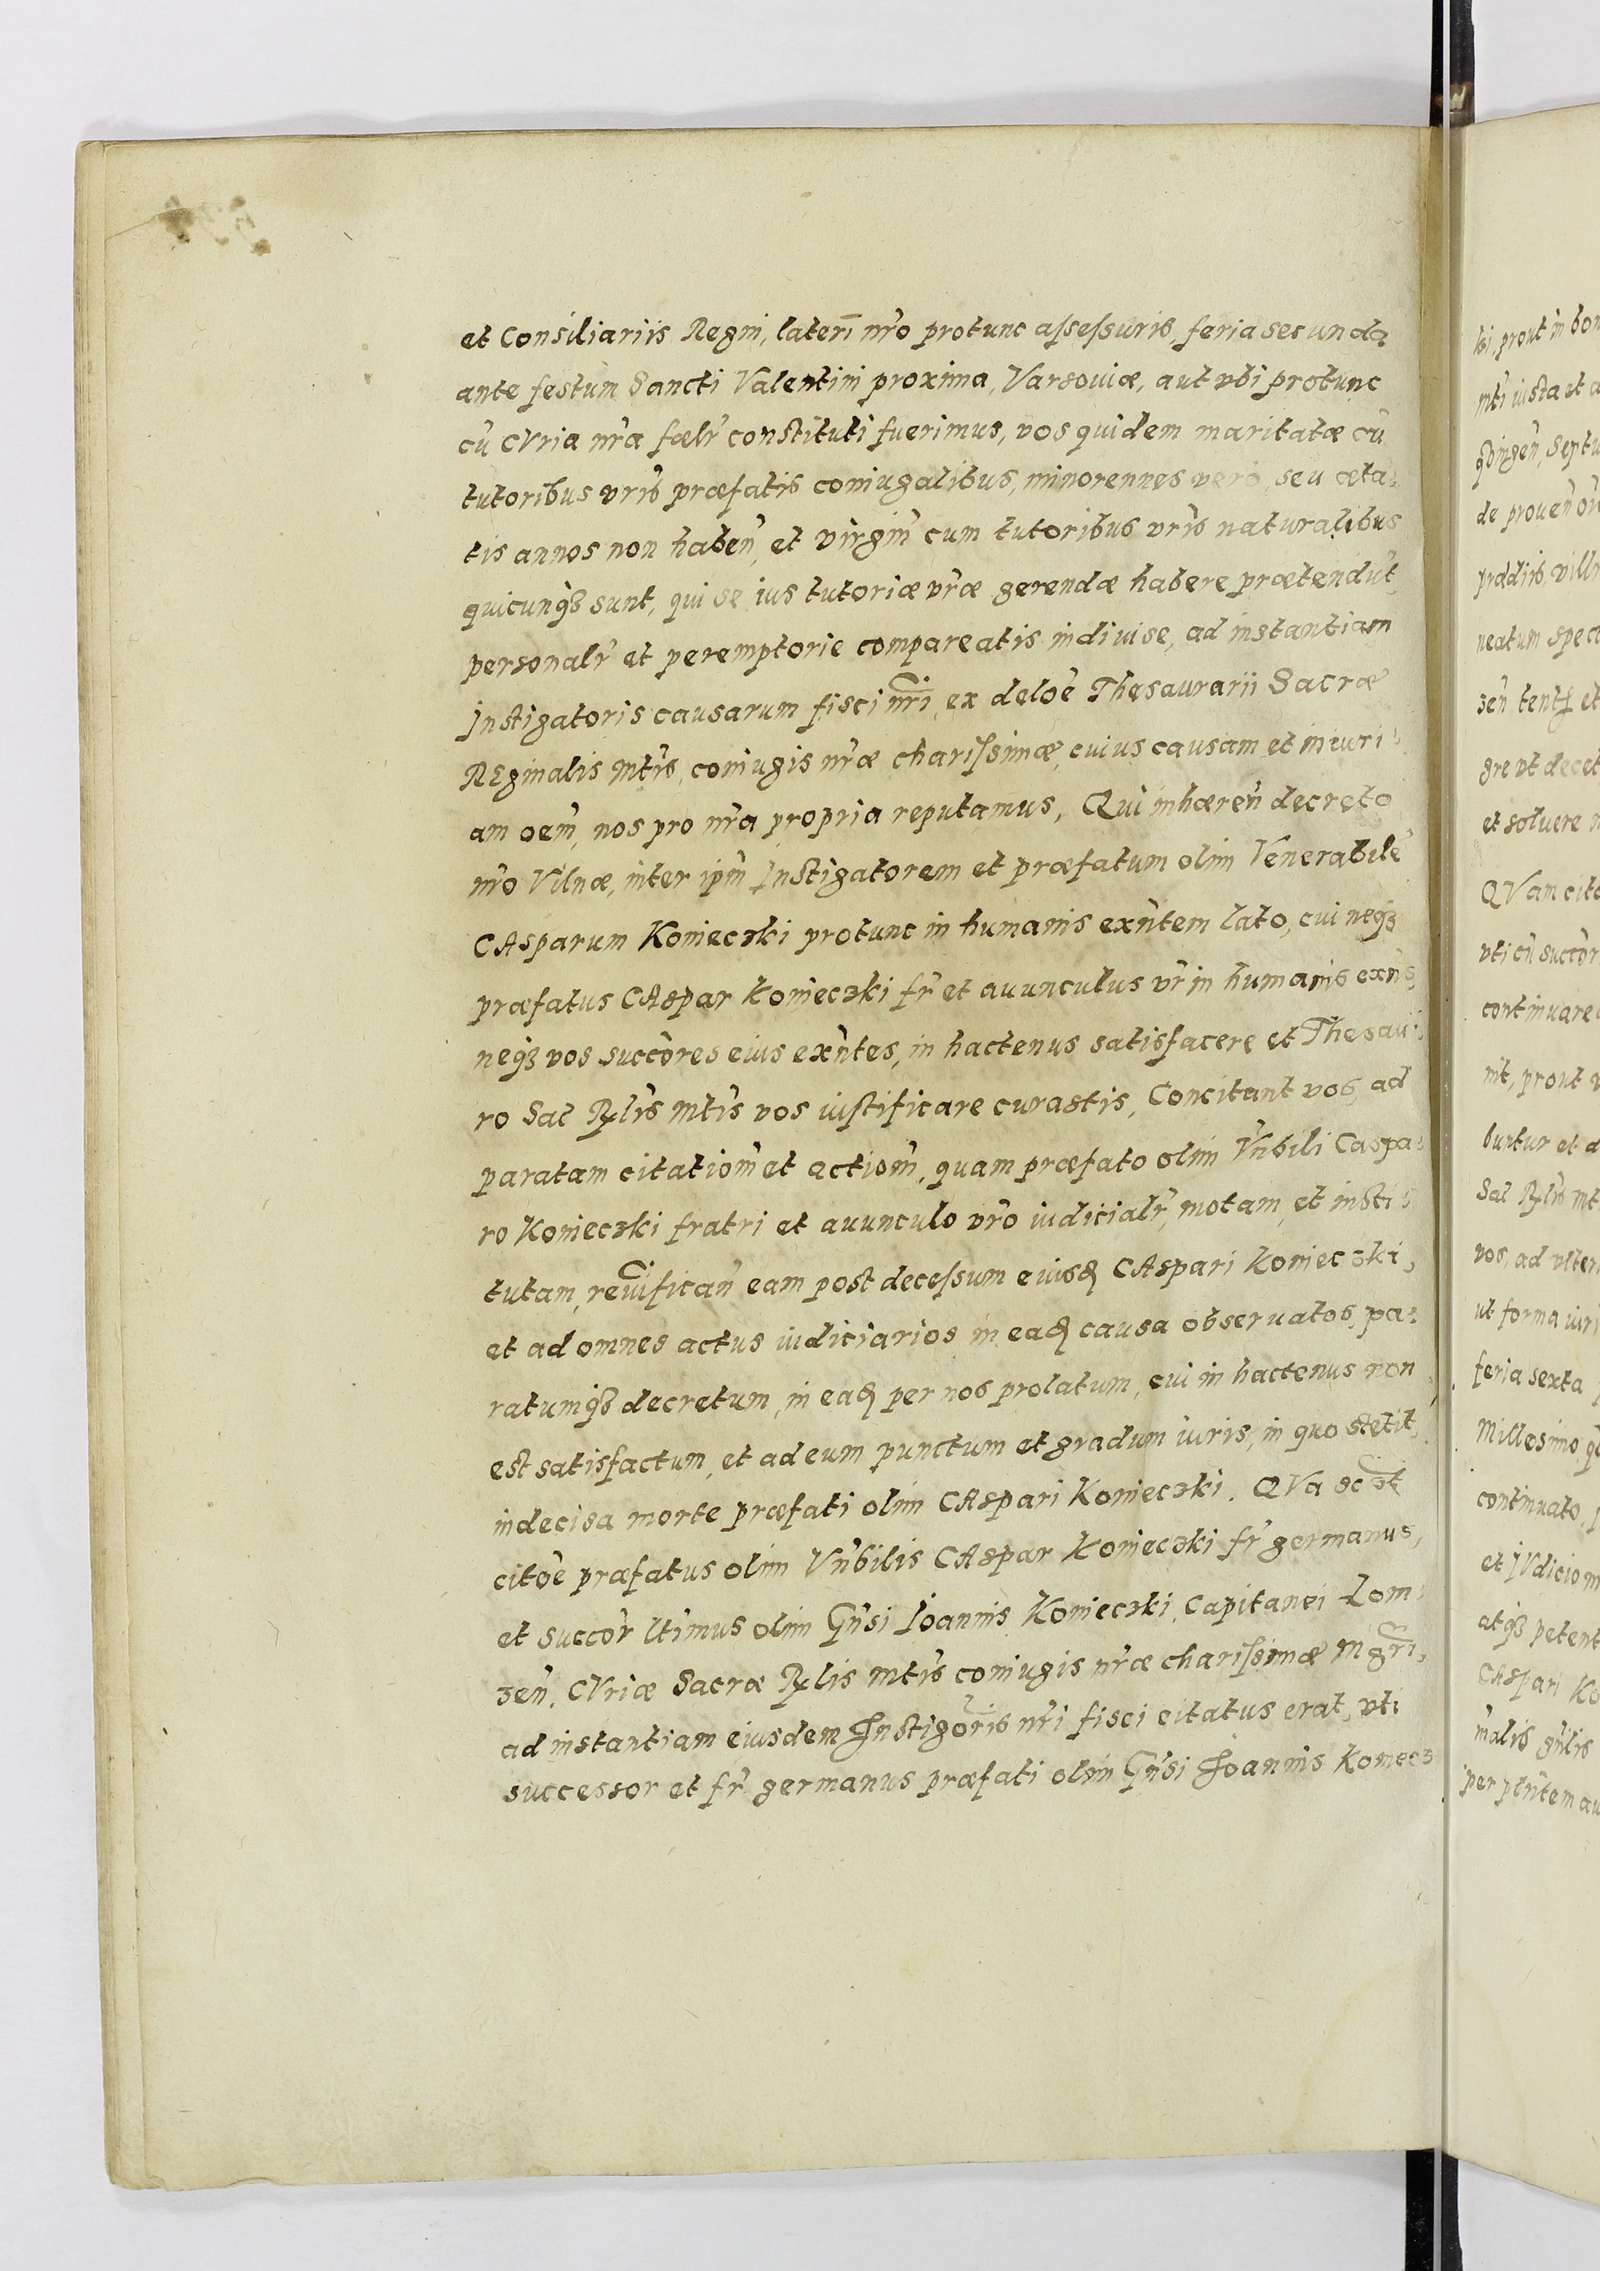 et Consiliariis Regni, lateri nr̃o protunc assessuris, feria secunda
ante festum Sancti Valentini proxima, Varsouiæ, aut vbi protunc
cũ CVria nr̃a fœlr̃ constituti fuerimus, vos quidem maritatæ cũ
tutoribus vr̃is præfatis coniugalibus, minorennes vero, seu æta:
tis annos non habeñ, et virgiñ cum tutoribus vr̃is naturalibus
quicunqȝ sunt, qui se ius tutoriæ vr̃æ gerendæ habere prætendũt,
personalr̃ et peremptorie compareatis indiuise, ad instantiam
Instigatoris causarum fisci nr̃i, ex deloẽ Thesaurarii Sacræ
REginalis Mtĩs, coniugis nr̃æ charissimæ, cuius causam et iniuri:
am oem̃, nos pro nr̃a propria reputamus, Qui inhæreñ decreto
nr̃o Vilnæ, inter ipm̃ Instigatorem et præfatum olim Venerabilẽ
CAsparum Konieczki protunc in humanis exñtem lato, cui neqȝ
præfatus CAspar Konieczki fr̃ et auunculus vr̃ in humanis exñs,
neqȝ vos succõres eius exñtes, in hactenus satisfacere et Thesau:
ro Sac Rꝝlis Mtĩs vos iustificare curastis, Concitant vos, ad
paratam citatiom̃ et actiom̃, quam præfato olim Vñbili Caspa:
ro Konieczki fratri et auunculo vr̃o iudicialr̃, motam, et insti:
tutam, reuificañ eam post decessum eiusꝗ CAspari Konieczki,
et ad omnes actus iudiciarios in eaꝗ causa obseruatos, pa:
ratumqȝ decretum, in eaꝗ per nos prolatum, cui in hactenus non
est satisfactum, et ad eum punctum et gradum iuris, in quo stetit,
indecisa morte præfati olim CAspari Konieczki. QVa
citoẽ præfatus olim Vñbilis CAspar Konieczki fr̃ germanus,
et succor̃ ltimus olim Gñsi Ioannis Konieczki, Capitanei Lom:
zeñ, CVriæ Sacræ Rꝝlis Mtĩs coniugis nr̃æ charissimæ Mgr̃i,
ad instantiam eiusdem Instigoris nr̃i fisci citatus erat, vti
successor et fr̃ germanus præfati olim Gñsi Ioannis Koniecz
prout in bon
de proueñ
neatum spec
et
gre vt decet
et soluere
QVam cita
vti cũ succor
continuare
nt, prout
buntur et a
Sac Rꝝlis Mt
vos, ad vlter
ut forma iuri
feria sexta
Millesimo
continuato,
et IVdicio
atqȝ petent
CAspari Ko
per pñtem au